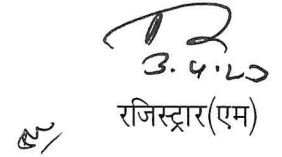 3.4.20
रजिस्ट्रार(एम)